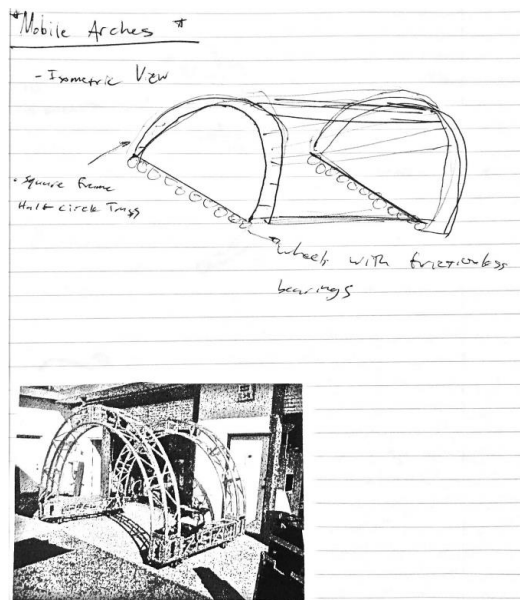 *Mobile Arches *
- Isometric View
- Square Frame
Half Circle Truss
wheels with frictionless
bearings